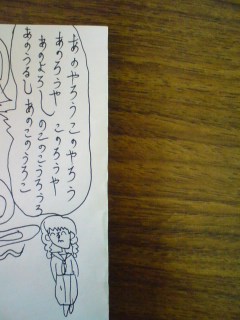 あのやろうこのやろう
あのろうやー　このろうや
あのよろしーのこのこうろうろ
あのうるしーあのこのうろこ